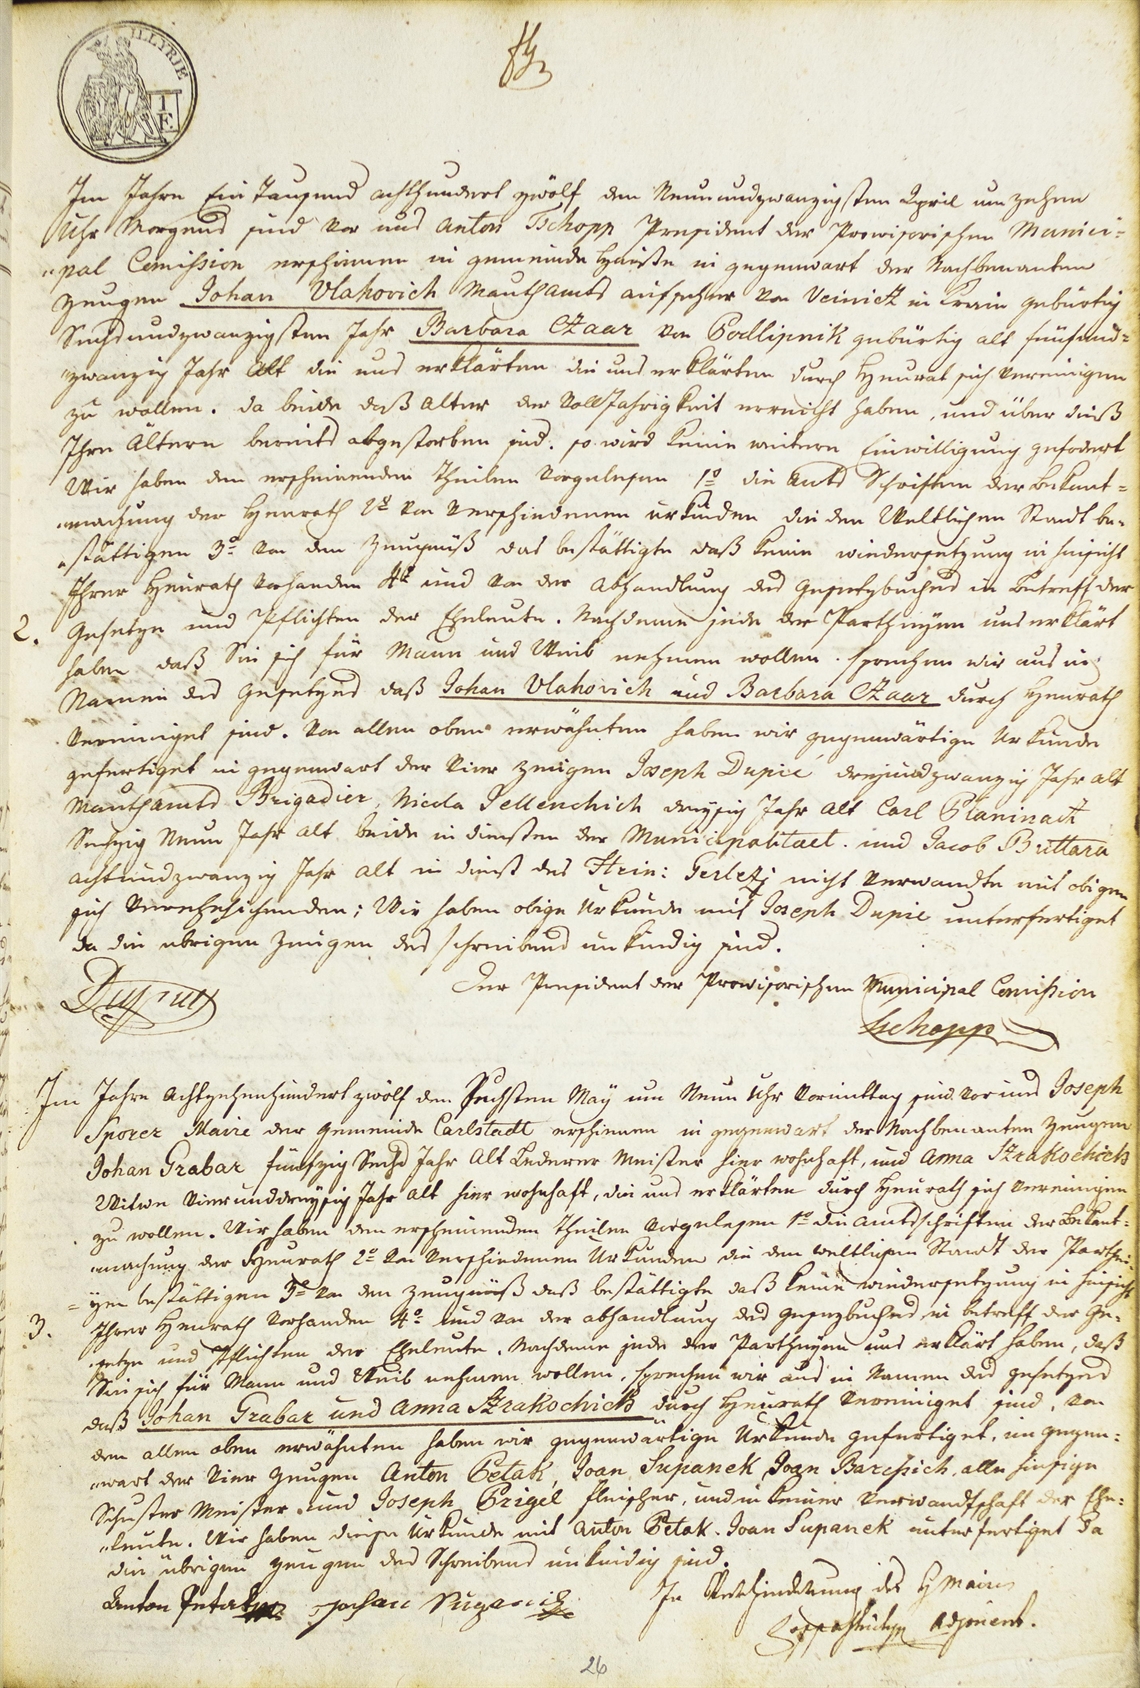 ILLYRIE
1
F.
Im Jahre Ein Tausend achthundert zwölf den Neunundzwanzigsten April um zehen
Uhr Morgens sind vor uns Anton Tschopp President der Provisorischen Munici=
"pal Comission erschienen in gemeinde Hause in gegenwart der Nachbenanten
Zeugen Johan Vlahovich Mauthamts aufseher von Veinitz in Krain gebürtig
Sechsundzwanzigsten Jahr Barbara Czaar von Podlipnik gebürtig alt fünfund=
"zwanzig Jahr Alt die uns erklärten die uns erklärten durch Heurat sich vereinigen
zu wollen. da beide daß Alter der Volljahrigkeit erreicht haben, und über dieß
Ihre Ältern bereits abgestorben sind. so wird keine weitere Einwilligung gefodert
Wir haben den erscheinenden Theilen vorgelesen 1º die Amts Schriften der Bekant=
"machung der Heurath 2º von verschiedenen urkunden die den Weltlichen Stand be=
"stättigen 3º von dem Zeugnüß das bestättigte daß keine wiedersetzung in hinsicht
Ihrer Heurath vorhanden 4º und von der Abhandlung des Gesetzbuches in Betreff der
2. Gesetze und Pflichten der Eheleute. Nachdeme jede der Partheyen uns erklärt
haben daß Sie sich für Mann und Weib nehmen wollen. sprechen wir aus in
Namen des Gesetzes daß Johan Vlahovich und Barbara Czaar durch Heurath
vereiniget sind. Von allen oben erwähnten haben wir gegenwärtige Urkunde
gefertiget in gegenwart der Vier Zeugen Joseph Dupié dreyundzwanzig Jahr alt
Mauthamts Brigadier, Nicola Sellenchich dreysig Jahr alt Carl Planinatz
Sechzig Neun Jahr alt beide in diensten der Municipalitaet. und Jacob Buttara
achtundzwanzig Jahr alt in dienst des Hrin: Gerletzj nicht verwandte mit obigen
sich Verehelichenden; Wir haben obige Urkunde mit Joseph Dupie unterfertiget
da die übrigen Zeugen des schreibens unkundig sind.
Der President der Provisorischen Municipal Comission
Tschopp
Im Jahre Achtzehenhundert zwölf den Sechsten May um Neun Uhr Vormittag sind vor uns Joseph
Sporer Maire der Gemeinde Carlstadt erschienen in gegenwart der Nachbenanten Zeugen
Johan Grabar fünfzig Sechs Jahr Alt Lederer Meister hier wohnhaft, und Anna Strakochick
Witwe Vierunddreysig Jahr alt hier wohnhaft, die uns erklärten durch Heurath sich vereinigen
zu wollen. Wir haben den erscheinenden Theilen vorgelesen 1º die amtsschriften der Bekant=
"machung der Heurath 2º von verschiedenen Urkunden die den weltlichen Standt der Parthei
=yen bestättigen 3º von den Zeugnüß daß bestättigte daß keine wiedersetzung in hinsicht
3. Ihrer Heurath vorhanden 4º und von der abhandlung des gesezbuches in betreff der Ge=
"setze und Pflichten der Eheleute. Nachdeme jede der Partheyen uns erklärt haben, daß
Sie sich für Mann und Weib nehmen wollen, sprechen wir aus in Namen des gesetzes
daß Johan Grabar und Anna Strakochick durch Heurath vereiniget sind. Von
dem allen oben erwähnten haben wir gegenwärtige Urkunde gefertiget, in gegen=
"wart der Vier Zeugen Anton Petak, Joan Supanek, Joan Barchich, alle hiesige
Schuster Meister und Joseph Prigel fleischer, und in keiner Verwandtschaft der Ehe=
"leute. Wir haben diese Urkunde mit Anton Petak. Joan Supanek unterfertiget da
die übrigen Zeugen des Schreibens unkundig sind.
Anton Petak Johan Supanek
In Verhinderung des H Maires
Adjoient.
26